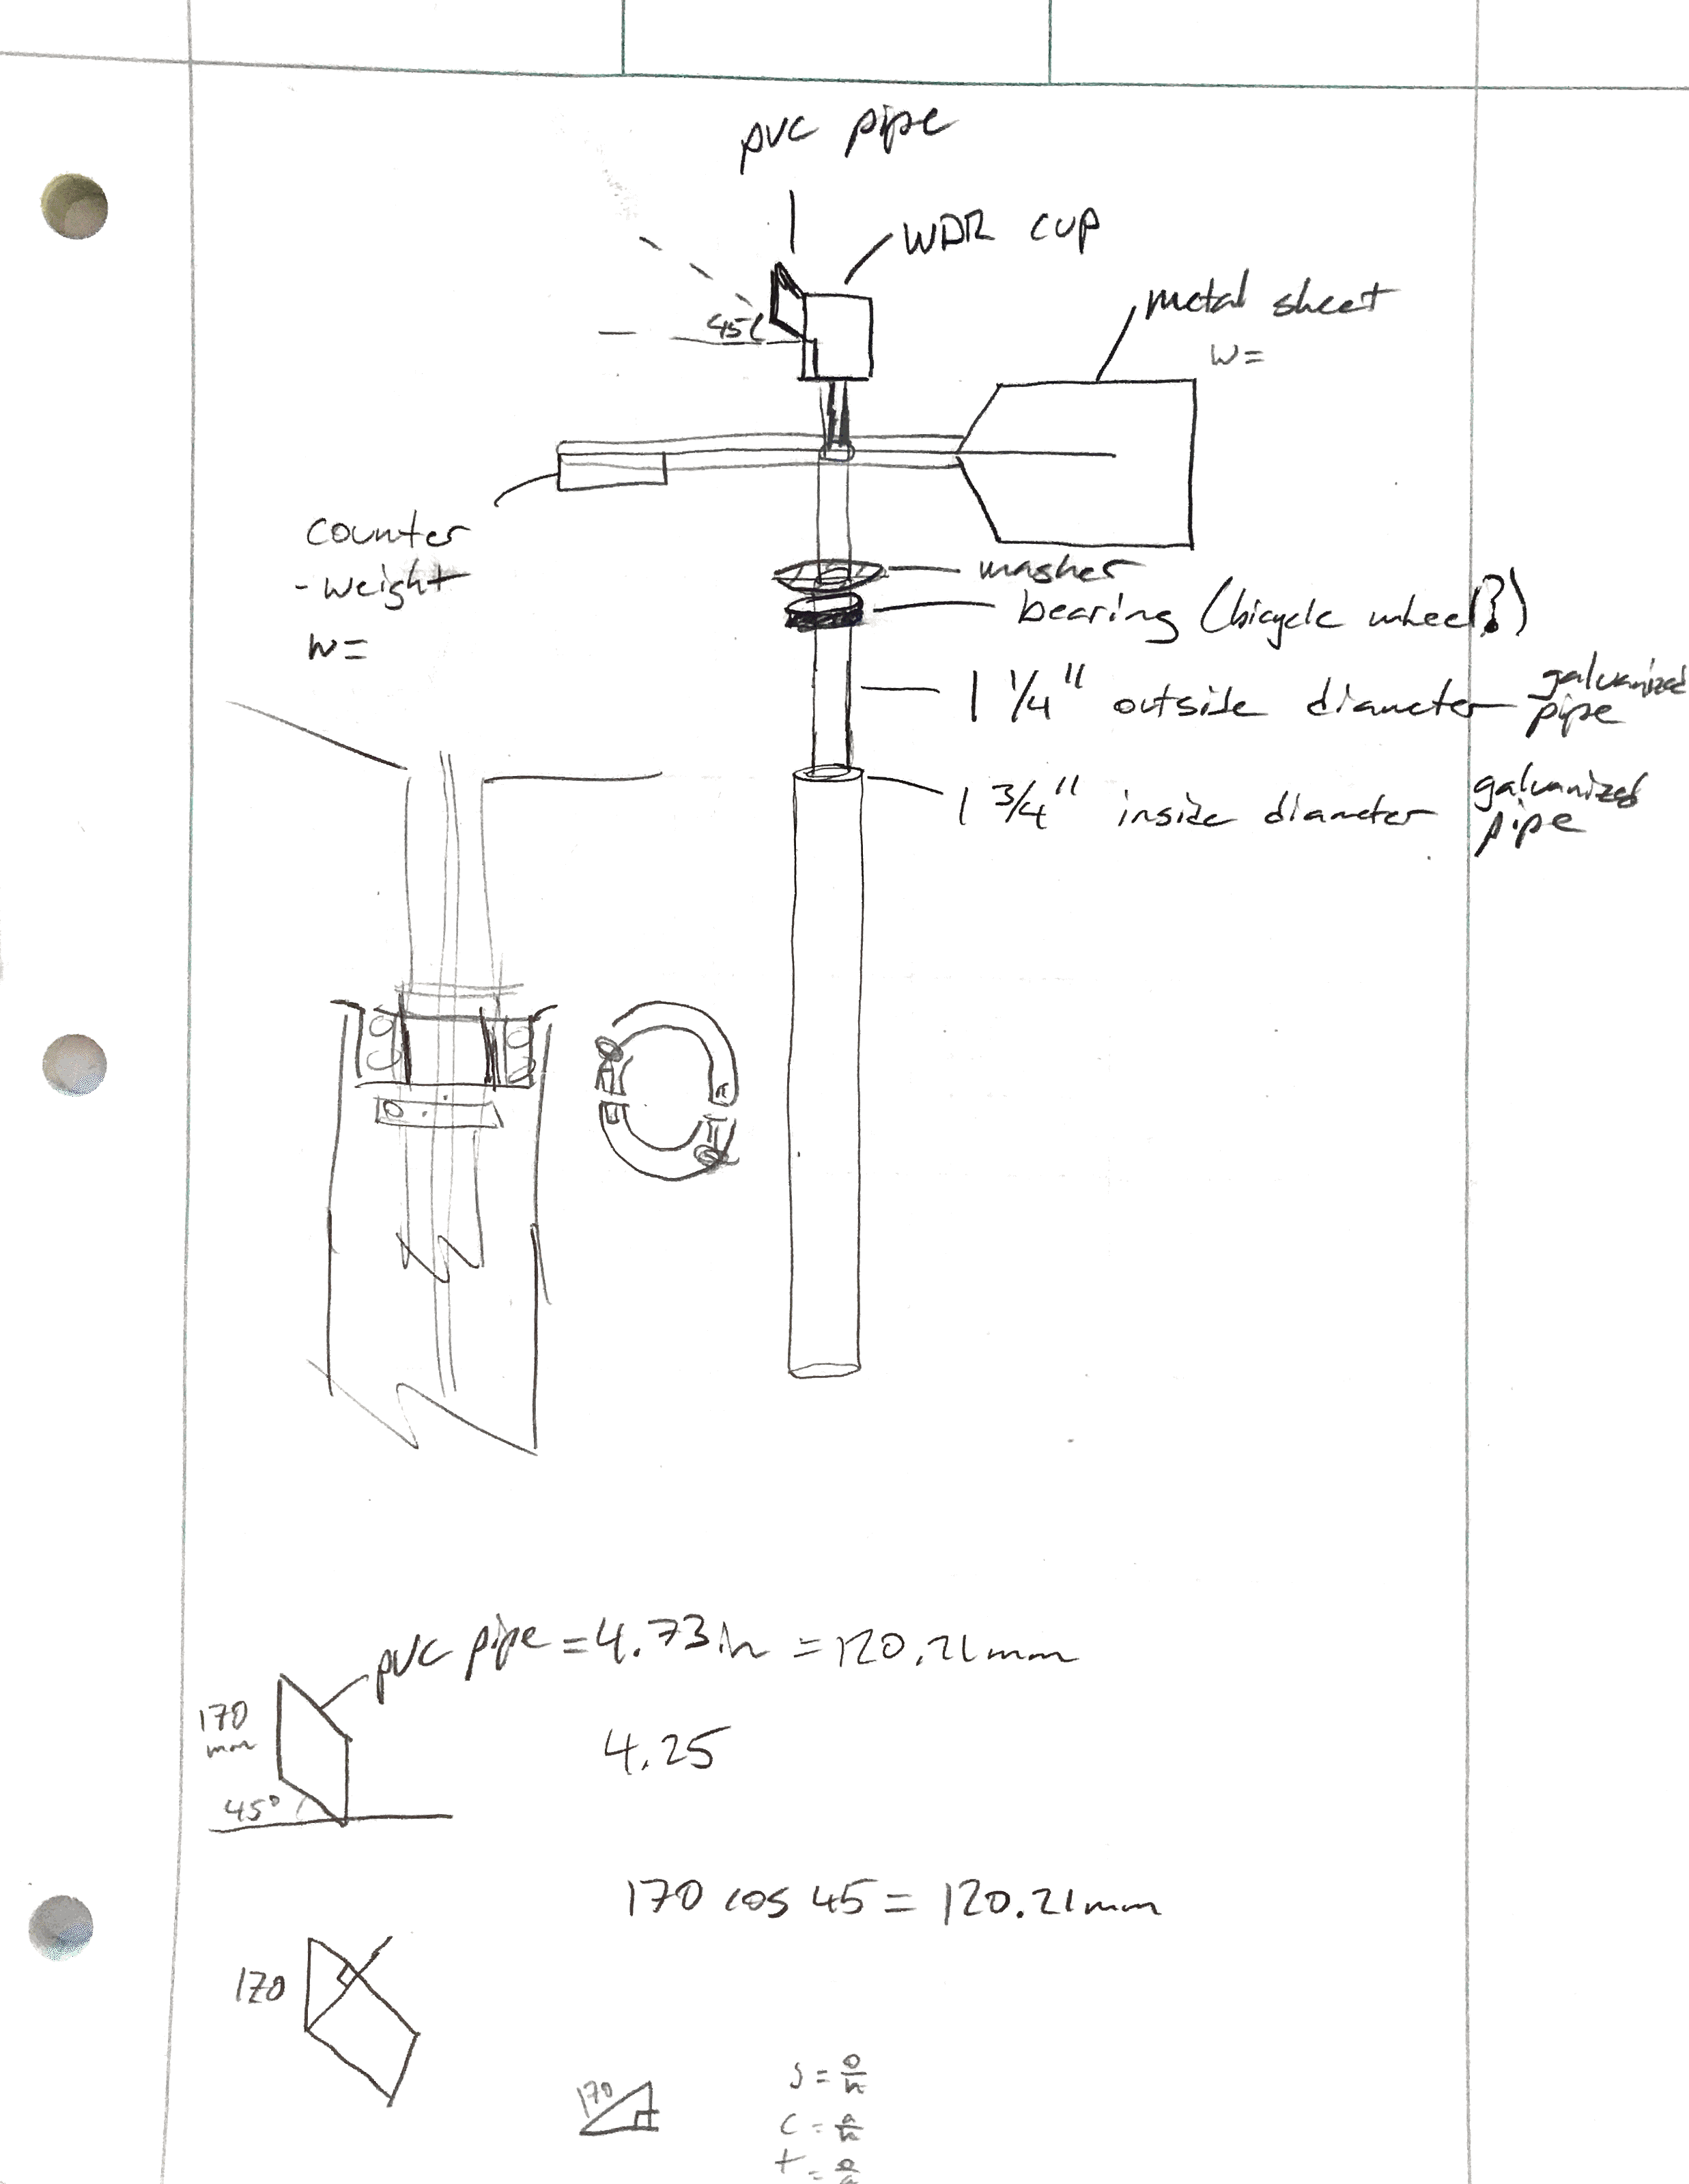 pvc pipe
WDR cup
metal sheet
w=
45
counter
-weight
w=
washer
bearing (bicycle wheel?)
1 1/4" outside diameter galvanized pipe
1 3/4" inside diameter galvanized pipe
pvc pipe = 4.73in = 120.21mm
170
mm
4.25
45°
170 cos 45 = 120.21mm
170
170
s = o/h
c = a/h
t = o/a